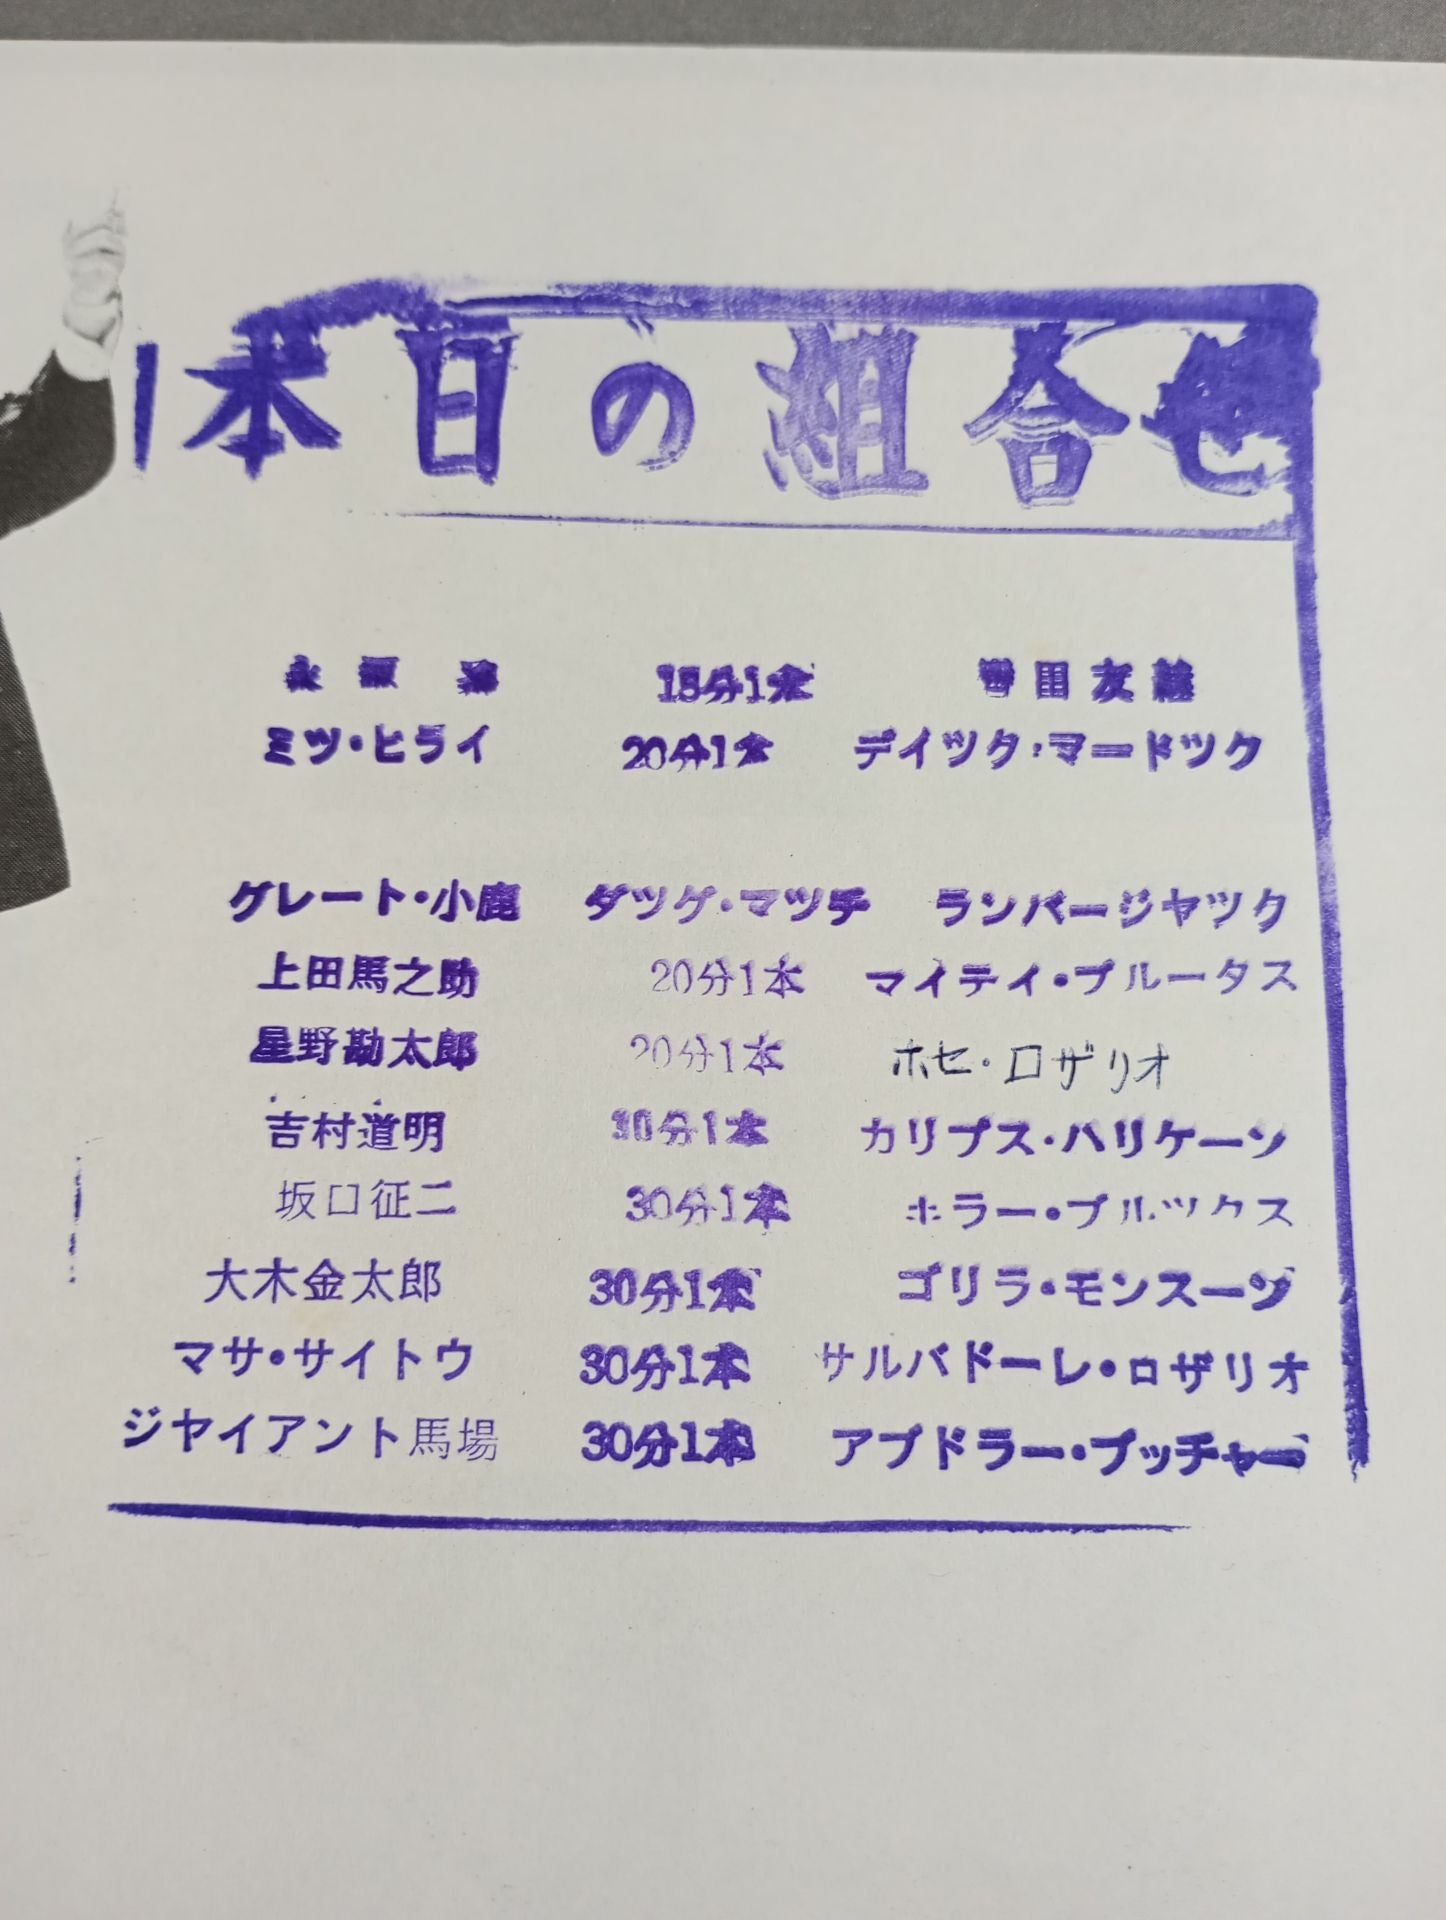 本日の組合せ
永源遙 15分1本 田友
ミツ・ヒライ 20分1本 デイツク・マードツク
グレート・小鹿 ダツグ・マツチ ランバージヤツク
上田馬之助 20分1本 マイテイ・ブルータス
星野勘太郎 20分1本 ホセ・ロザリオ
吉村道明 30分1本 カリプス・ハリケーン
坂口征二 30分1本 ホラー・ブルツクス
大木金太郎 30分1本 ゴリラ・モンスーン
マサ・サイトウ 30分1本 サルバドーレ・ロザリオ
ジヤイアント馬場 30分1本 アブドラー・ブッチャー